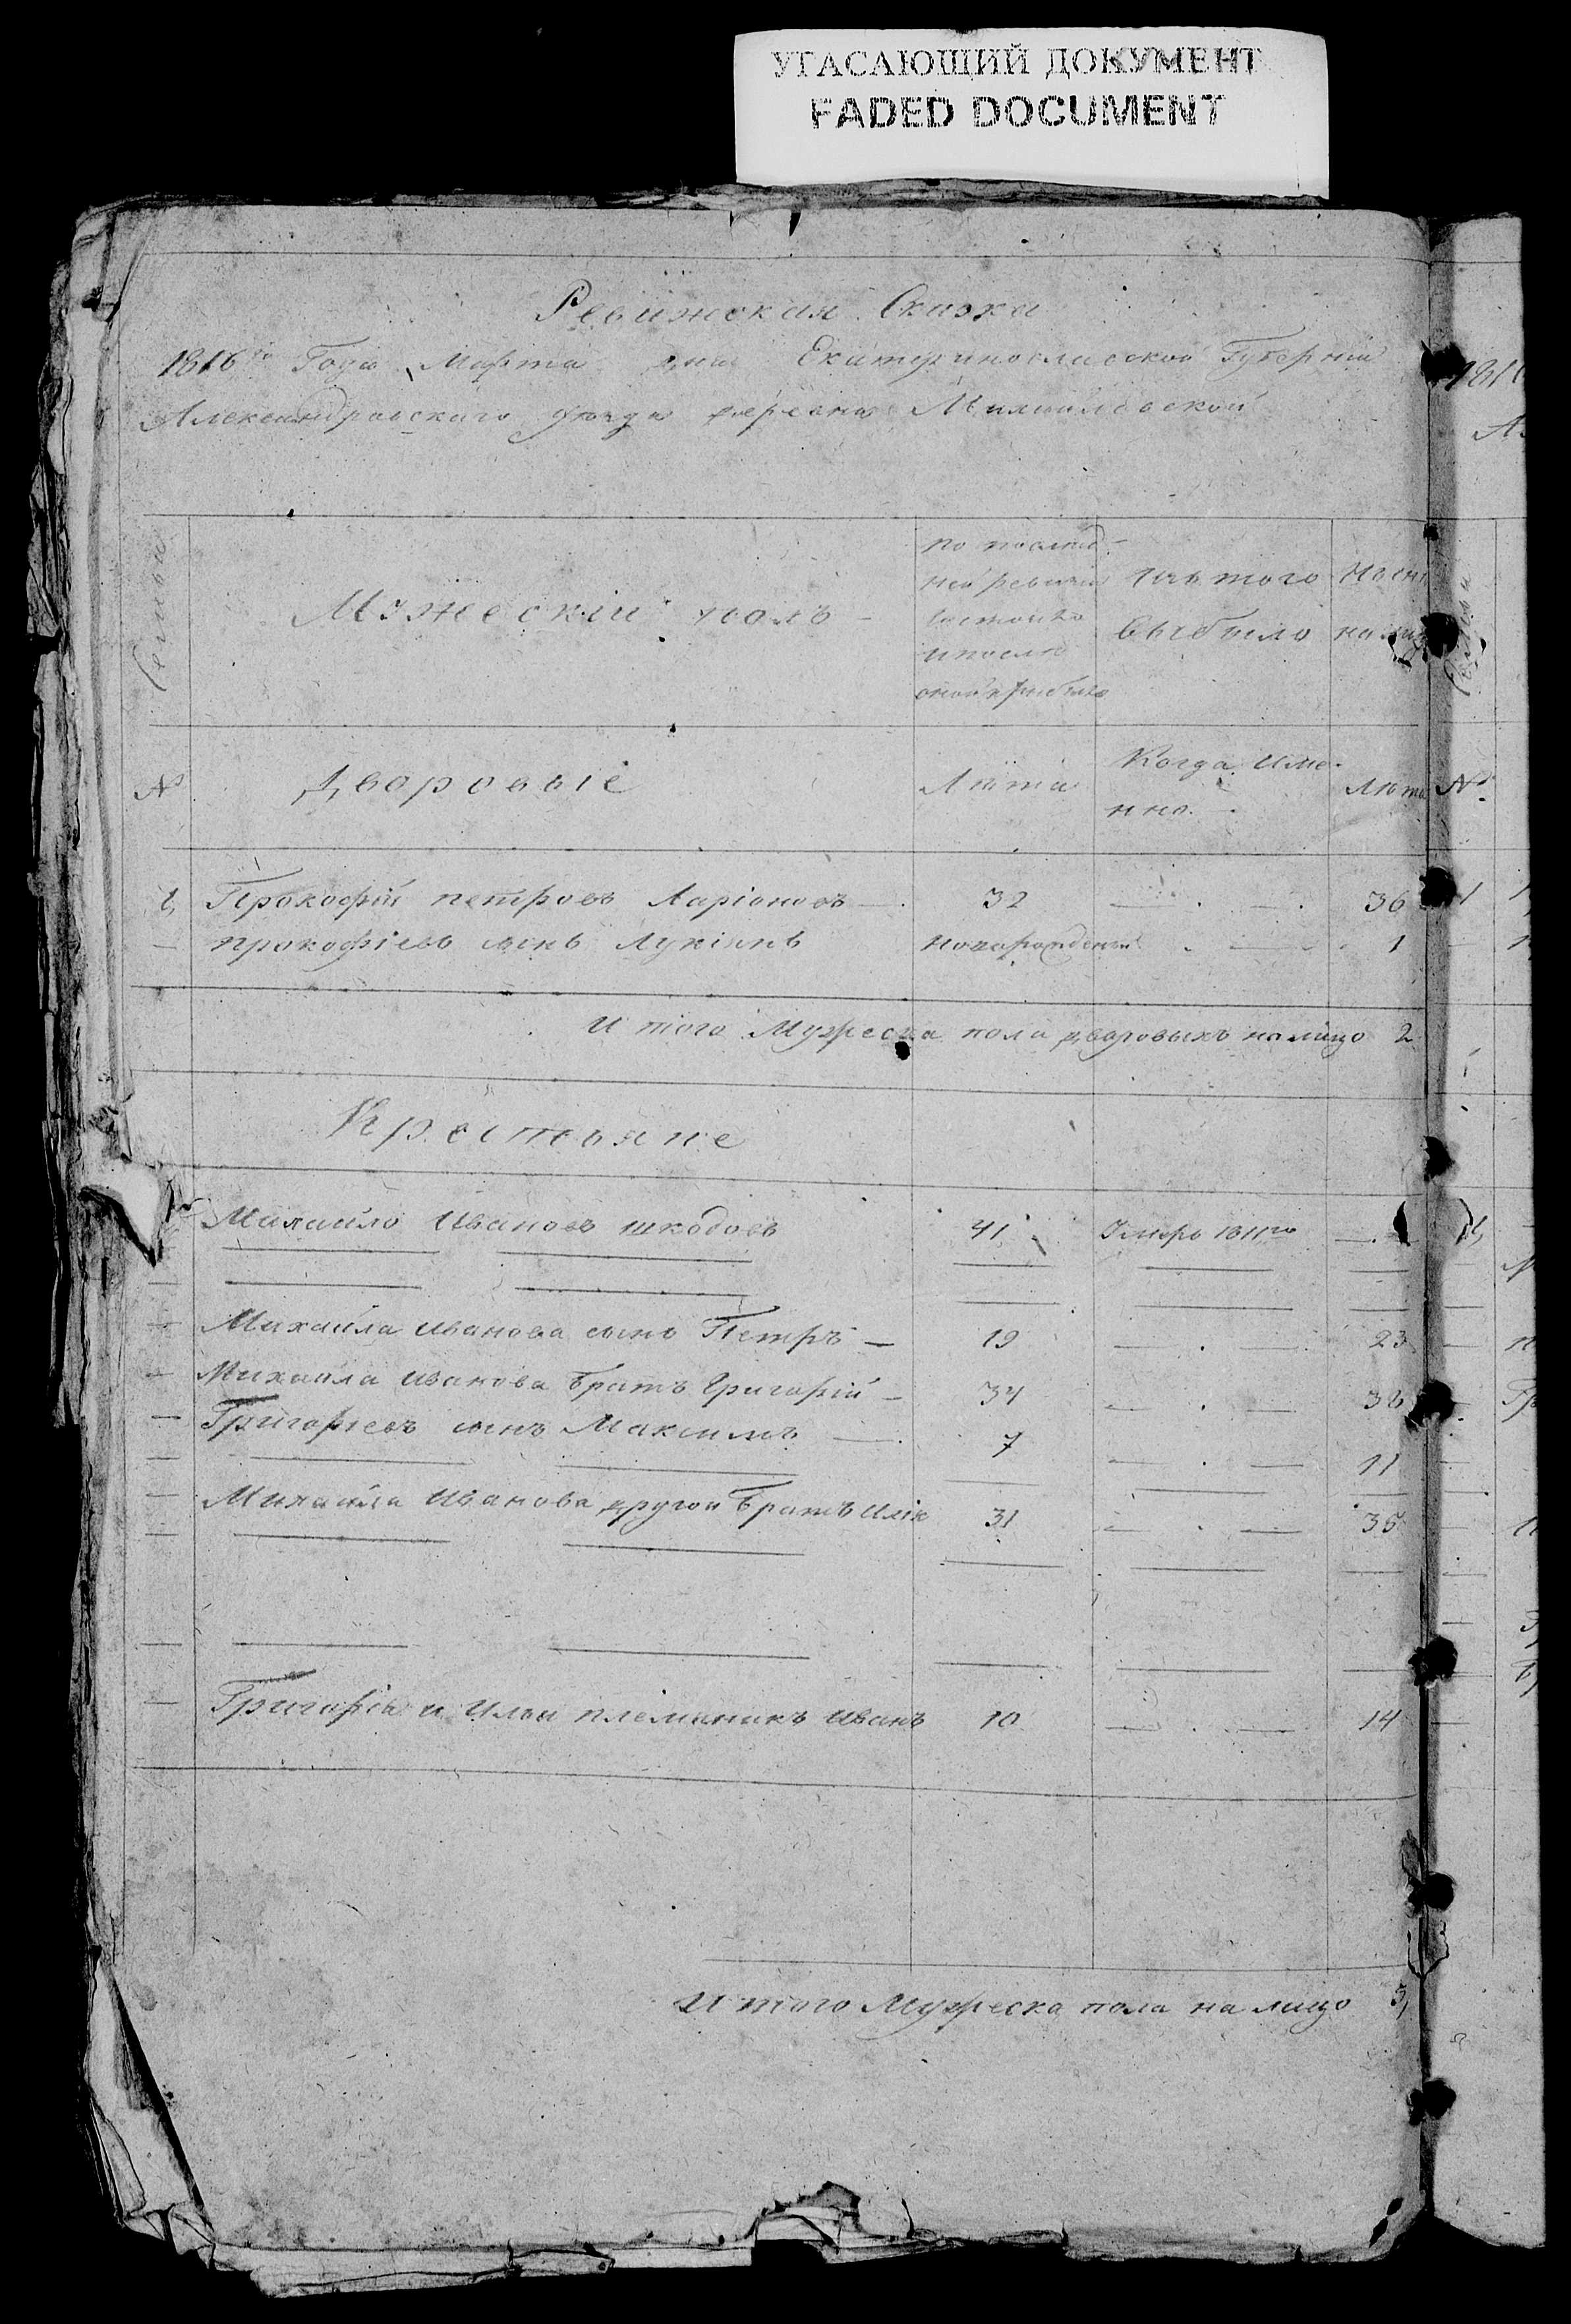 УГАСАЮЩИЙ ДОКУМЕНТ
FADED DOCUMENT
Ревижская Сказка
1816го Года Марта дня Екатеринославской Губернии
Александровского уезда деревни Михайловской
Семьи
Мужескій полъ
по послед-
ней ревизии
состояло
и после
оной прибыло
Изъ того
выбыло
Ныне
на лицо
№
Дворовыіе
Лѣта
Когда име-
нно.
Лѣта
1, Прокофій петровъ Ларіоновъ — 32 — . — . 36
— прокофіевъ сынъ Лукіянъ новорожденъ . — . 1
И того Мужеска пола дворовыхъ на лицо 2
Крестьяне
Михайло Ивановъ шкодовъ 41 Умеръ 1811го — . —
— Михайла Иванова сынъ Петръ — 19 — . — 23
— Михайла Иванова братъ Григорій — 34 — . — 38
— Григорьевъ сынъ Максимъ — 7 — . — 11
— Михайла Иванова другои братъ Илія 31 — . — 35
— Григорія и Ильи племяникъ Иванъ 10 — . — 14
И того Мужеска пола на лицо 5,